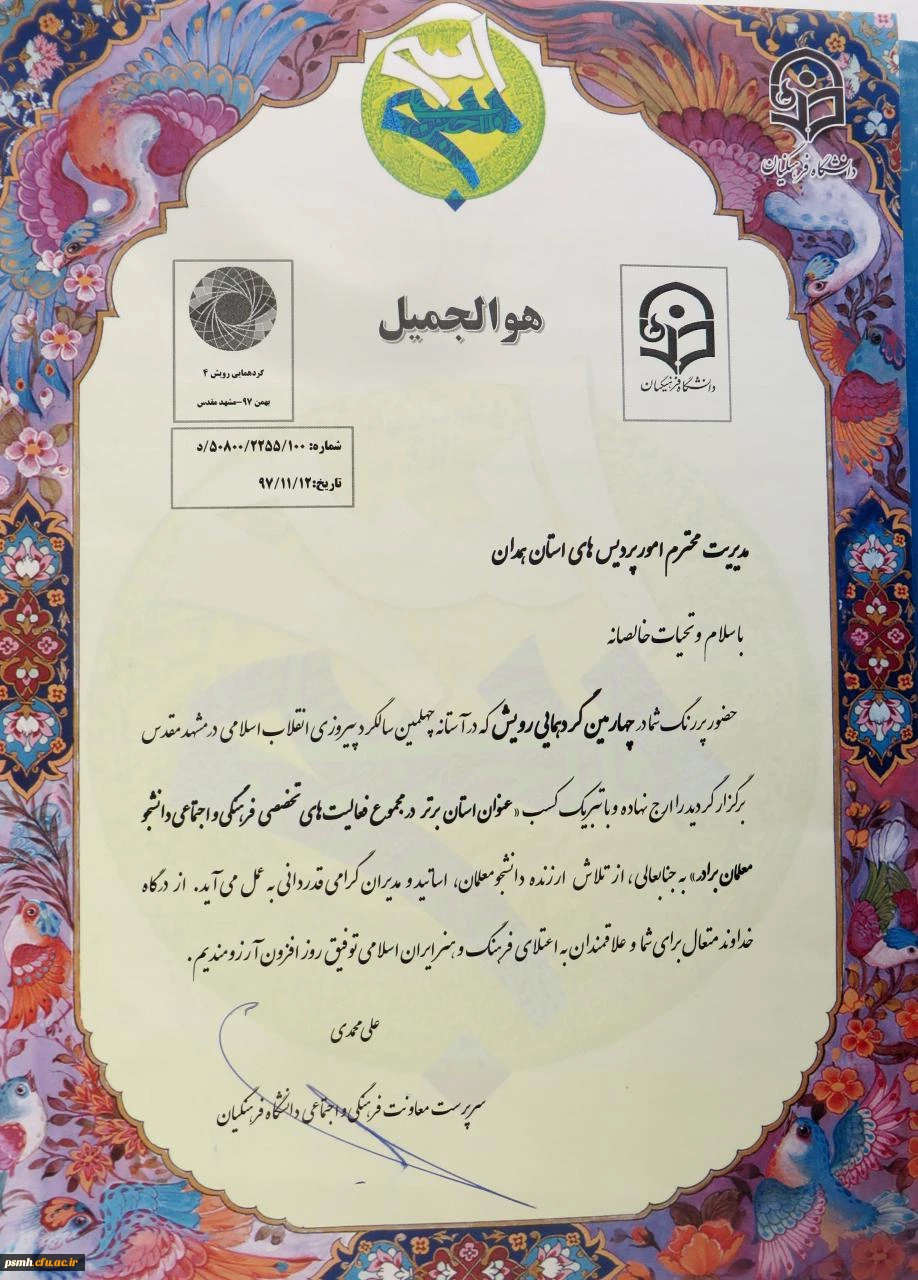 دانشگاه فرهنگیان
هوالجمیل
دانشگاه فرهنگیان
گردهمایی رویش ۴
بهمن ۹۷-مشهد مقدس
شماره: ۵۰۸۰۰/۲۲۵۵/۱۰۰/د
تاریخ:۹۷/۱۱/۱۲
مدیریت محترم امور پردیس های استان همدان
باسلام و تحیات خالصانه
حضور پررنگ شما در چهارمین گردهمایی رویش که در آستانه چهلمین سالگرد پیروزی انقلاب اسلامی در مشهد مقدس
برگزار گردید را ارج نهاده و با تبریک کسب «عنوان استان برتر در مجموع فعالیت‌های تخصصی فرهنگی و اجتماعی دانشجو
معلمان برادر» به جنابعالی، از تلاش ارزنده دانشجومعلمان، اساتید و مدیران گرامی قدردانی به عمل می آید. از درگاه
خداوند متعال برای شما و علاقمندان به اعتلای فرهنگ و هنر ایران اسلامی توفیق روز افزون آرزومندیم.
علی محمدی
سرپرست معاونت فرهنگی و اجتماعی دانشگاه فرهنگیان
psmh.cfu.ac.ir